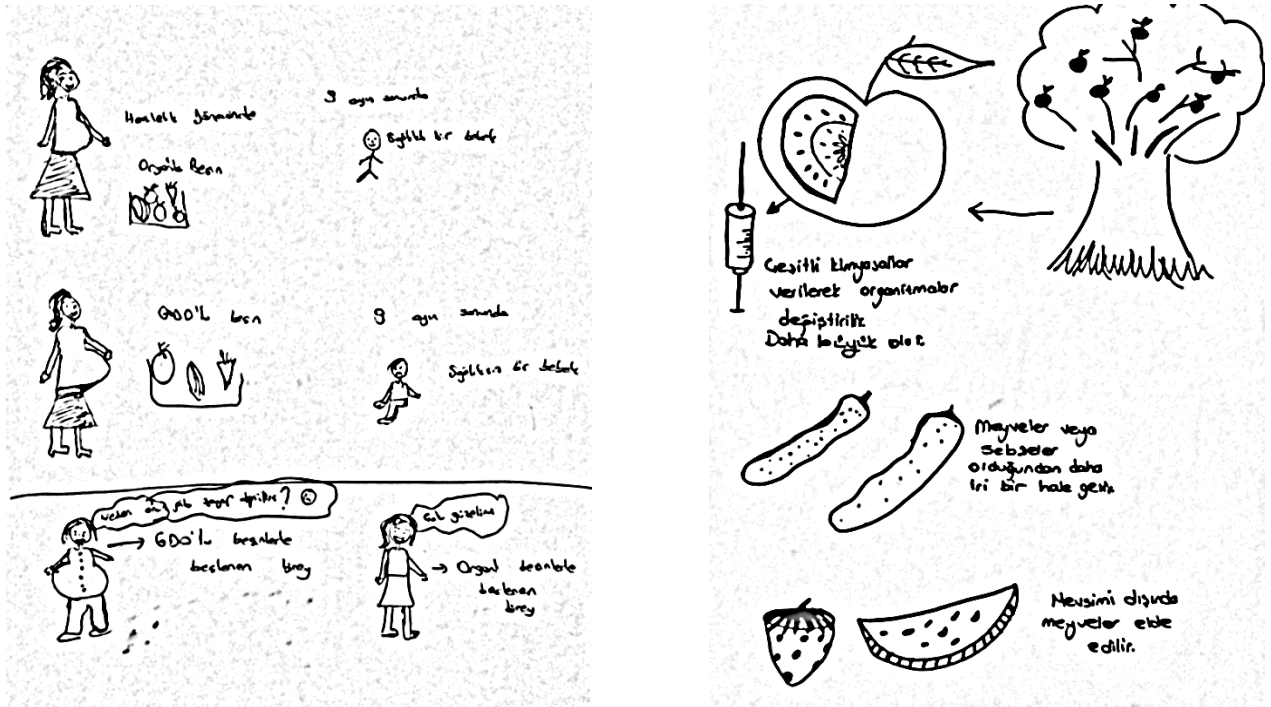 Hamilelik döneminde
9 ayın sonunda
Sağlıklı bir bebek
Organik Besin
GDO'lu besin
9 ayın sonunda
Sağlıksız bir bebek
Neden
?
→ GDO'lu besinlerle
beslenen birey
Çok güzelim
→ Organik besinlerle
beslenen
birey
Çeşitli kimyasallar
verilerek organizmalar
değiştirilir.
Daha büyük olur.
Meyveler veya
sebzeler
olduğundan daha
iri bir hale gelir.
Mevsimi dışında
meyveler elde
edilir.